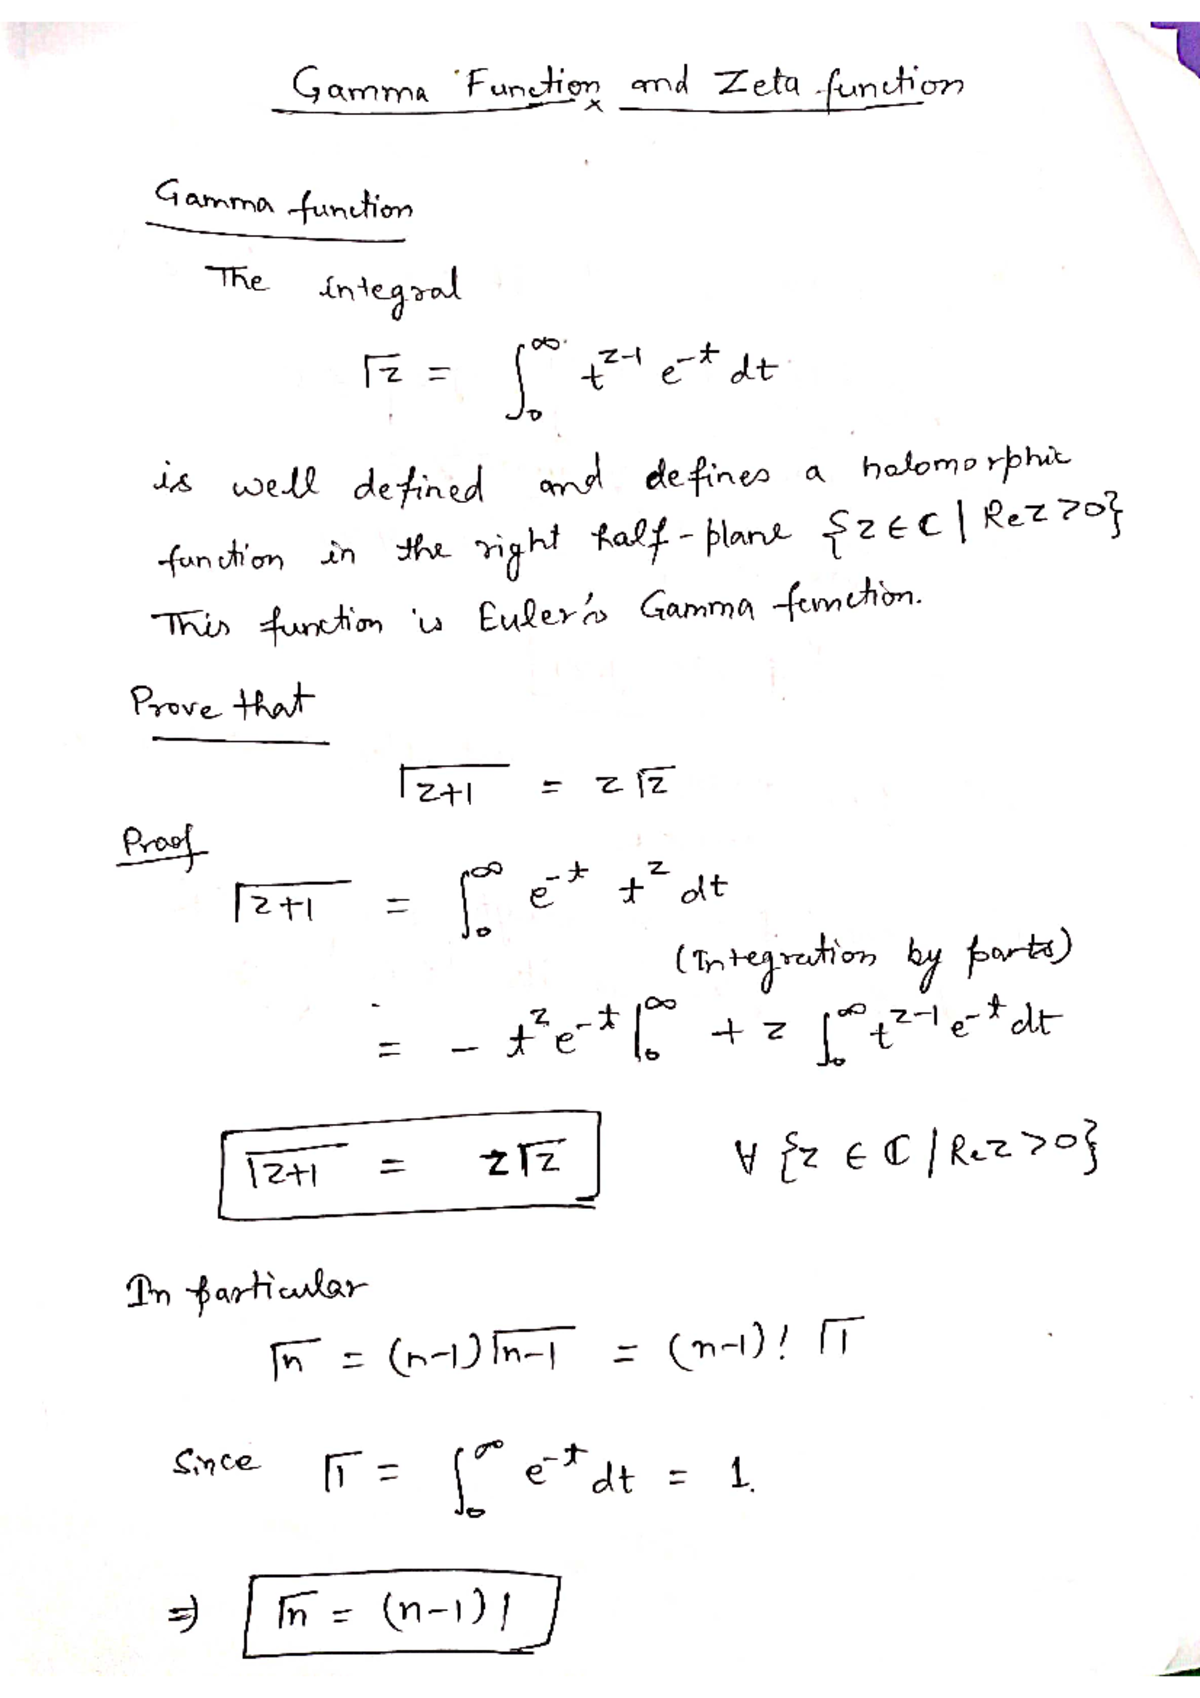 Gamma Function and Zeta function
x
Gamma function
The integral
Γz = ∫₀^∞ t^{z-1} e^{-t} dt
is well defined and defines a holomorphic
function in the right half-plane {z ∈ ℂ | Re z > 0}
This function is Euler's Gamma function.
Prove that
Γz+1 = z Γz
Proof
Γz+1 = ∫₀^∞ e^{-t} t^z dt
(Integration by parts)
= - t^z e^{-t} |₀^∞ + z ∫₀^∞ t^{z-1} e^{-t} dt
Γz+1 = z Γz ∀ {z ∈ ℂ | Re z > 0}
In particular
Γn = (n-1) Γn-1 = (n-1)! Γ1
Since Γ1 = ∫₀^∞ e^{-t} dt = 1.
⇒ Γn = (n-1)!